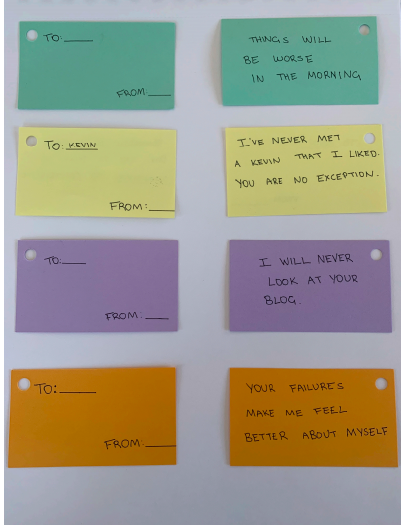 TO:____
FROM:____
THINGS WILL
BE WORSE
IN THE MORNING
TO: KEVIN
FROM:____
I'VE NEVER MET
A KEVIN THAT I LIKED.
YOU ARE NO EXCEPTION.
TO:____
FROM:____
I WILL NEVER
LOOK AT YOUR
BLOG.
TO:____
FROM:____
YOUR FAILURES
MAKE ME FEEL
BETTER ABOUT MYSELF